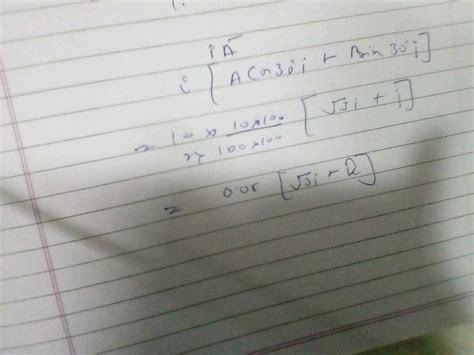 i Ā
i [ A Cos 30 i + A sin 30 j ]
= 10 × 10×10 / 2× 100×100 [ √3 i + j ]
= 0.05 [ √3 i + k ]